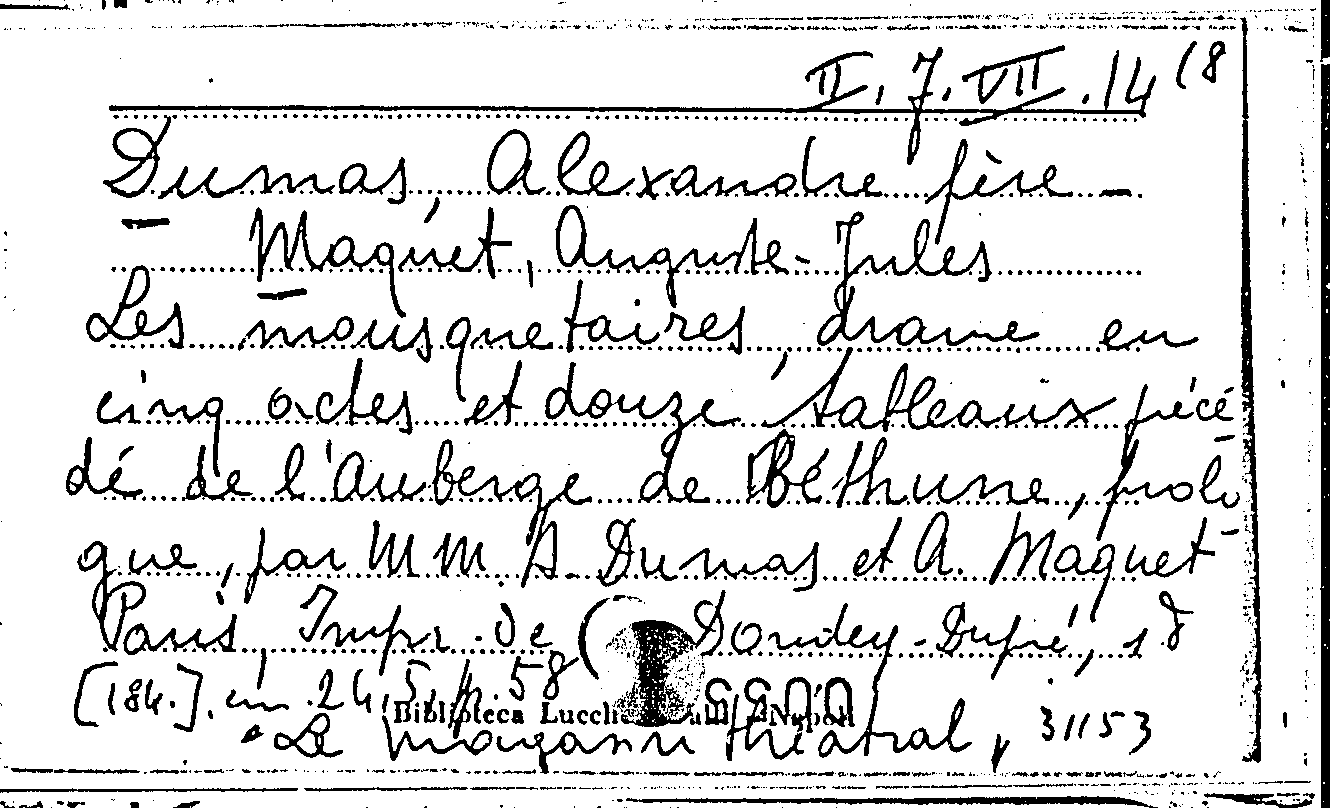 II. J. VII. 14 (8
Dumas, Alexandre père -
Maquet, Auguste-Jules
Les mousquetaires, drame en
cinq actes et douze tableaux précé
dé de l'Auberge de Béthune, prolo-
gue, par MM. A. Dumas et A. Maquet -
Paris, Impr. de Dondey-Dupré, s d
[184.]. cm. 24,5, p. 58
Biblioteca Lucchesi Palli Napoli
"Le magasin théatral, 31153